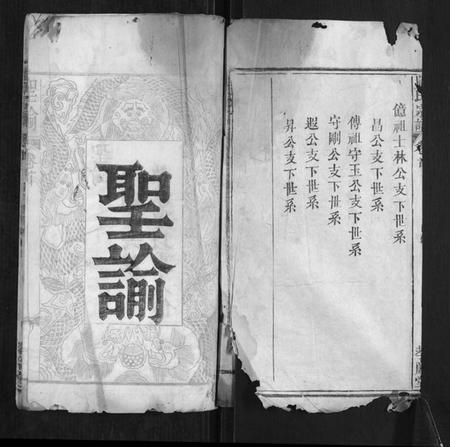 億祖士林公支下世系
昌公支下世系
傅祖守玉公支下世系
守剛公支下世系
遐公支下世系
昇公支下世系
聖諭
聖諭